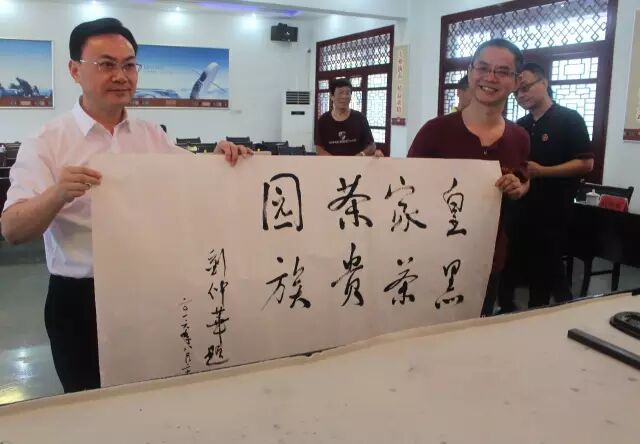 皇家茶园
黑茶貴族
劉仲華題
二〇一六年八月